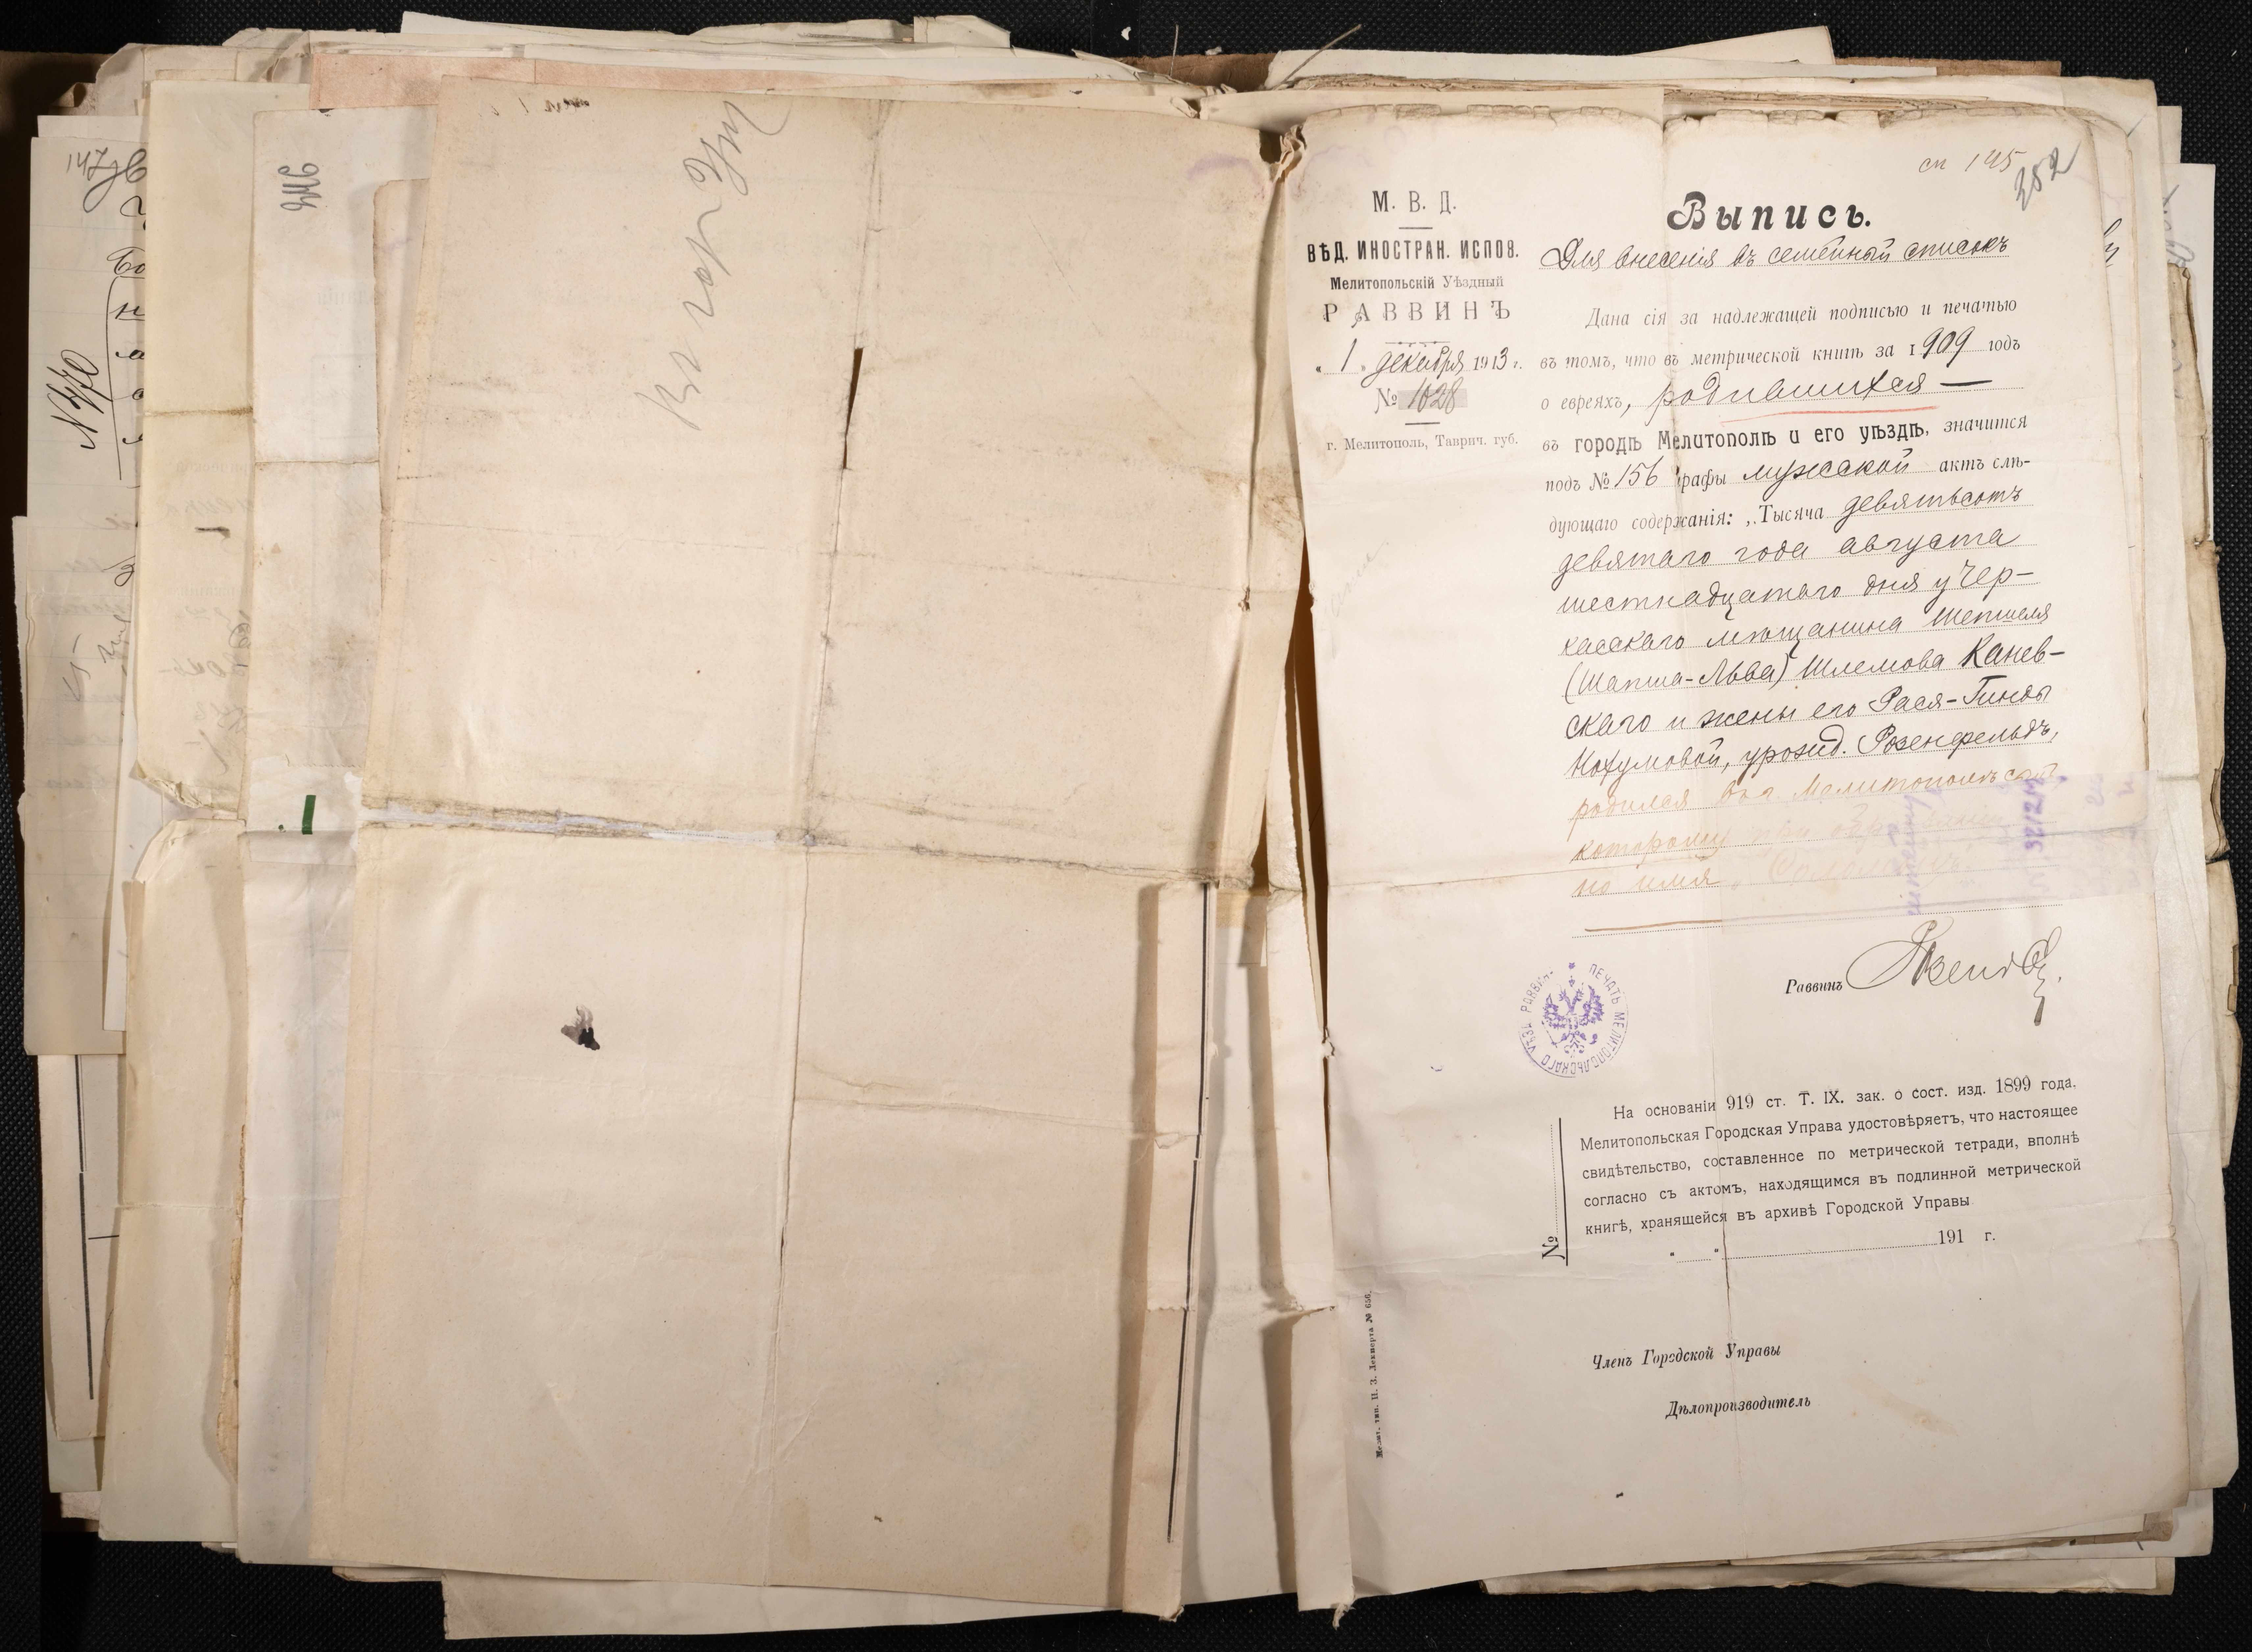 147
N 370
246
ст 145
252
М. В. Д.
ВѢД. ИНОСТРАН. ИСПОВ.
Мелитопольскій Уѣздный
РАВВИНЪ
" 1 " декабря 1913 г.
№ 1028
г. Мелитополь, Таврич. губ.
Выпись.
Для внесенія въ семейный списокъ
Дана сія за надлежащей подписью и печатью
въ томъ, что въ метрической книгѣ за 1909 годъ
о евреяхъ, родившихся —
въ городѣ Мелитополѣ и его уѣздѣ, значится
подъ № 156 графы мужской актъ слѣ-
дующаго содержанія: „Тысяча девятьсотъ
девятаго года августа
шестнадцатаго дня у Чер-
касскаго мѣщанина Шепшеля
(Шапша-Льва) Шлемова Канев-
скаго и жены его Рася-Гинды
Нохумовой, урожд. Розенфельдъ,
родился въ г. Мелитополѣ сынъ
которому при обрѣзаніи
но имя „Соломонъ"
32/244
Раввинъ
ПЕЧАТЬ МЕЛИТОПОЛЬСКАГО УѢЗД. РАВВИНА
На основаніи 919 ст. Т. IX. зак. о сост. изд. 1899 года.
Мелитопольская Городская Управа удостовѣряетъ, что настоящее
свидѣтельство, составленное по метрической тетради, вполнѣ
согласно съ актомъ, находящимся въ подлинной метрической
книгѣ, хранящейся въ архивѣ Городской Управы
№
" " 191 г.
Членъ Городской Управы
Дѣлопроизводитель
Мелит. тип. Н. З. Лекперта № 656.